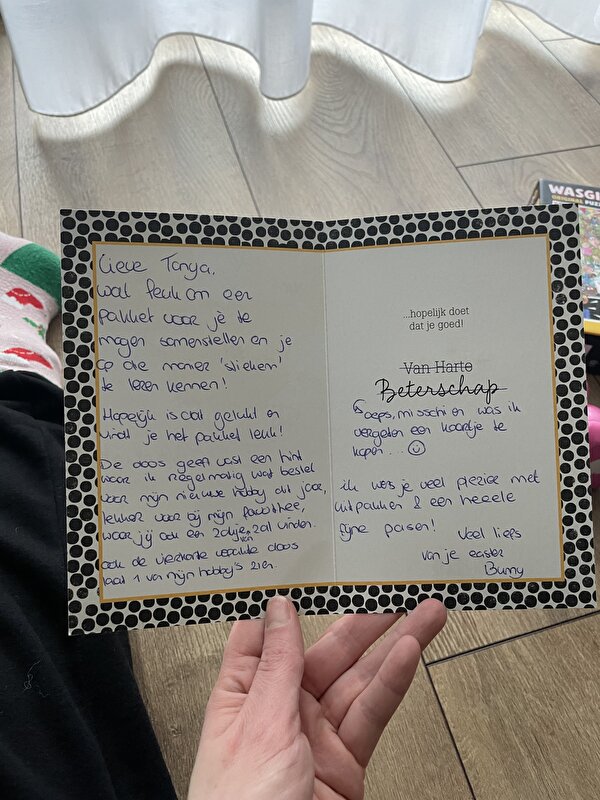 Lieve Tanya,
wat leuk om een
pakket voor je te
mogen samenstellen en je
op die manier 'stiekem'
te leren kennen!
Hopelijk is dat gelukt en
vindt je het pakket leuk!
De doos geeft vast een hint
waar ik regelmatig wat bestel
voor mijn nieuwe hobby dit jaar,
lekker voor bij mijn favo thee,
waar jij ook een zakje van zal vinden.
ook de vierkante doos
laat 1 van mijn hobby's zien.
...hopelijk doet
dat je goed!
Van Harte
Beterschap
oeps, misschien was ik
vergeten een kaartje te
kopen... ☺
ik wens je veel plezier met
uitpakken & een heeele
fijne pasen!
Veel liefs
van je easter
Bunny
WASGI
ORIGINAL PUZZ